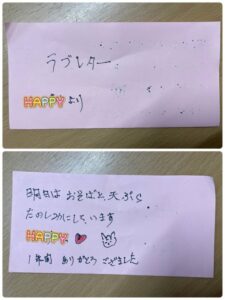 ラブレター
HAPPYより
明日は おそばと、天ぷら
たのしみにしています
HAPPY
1年間 ありがとうございました